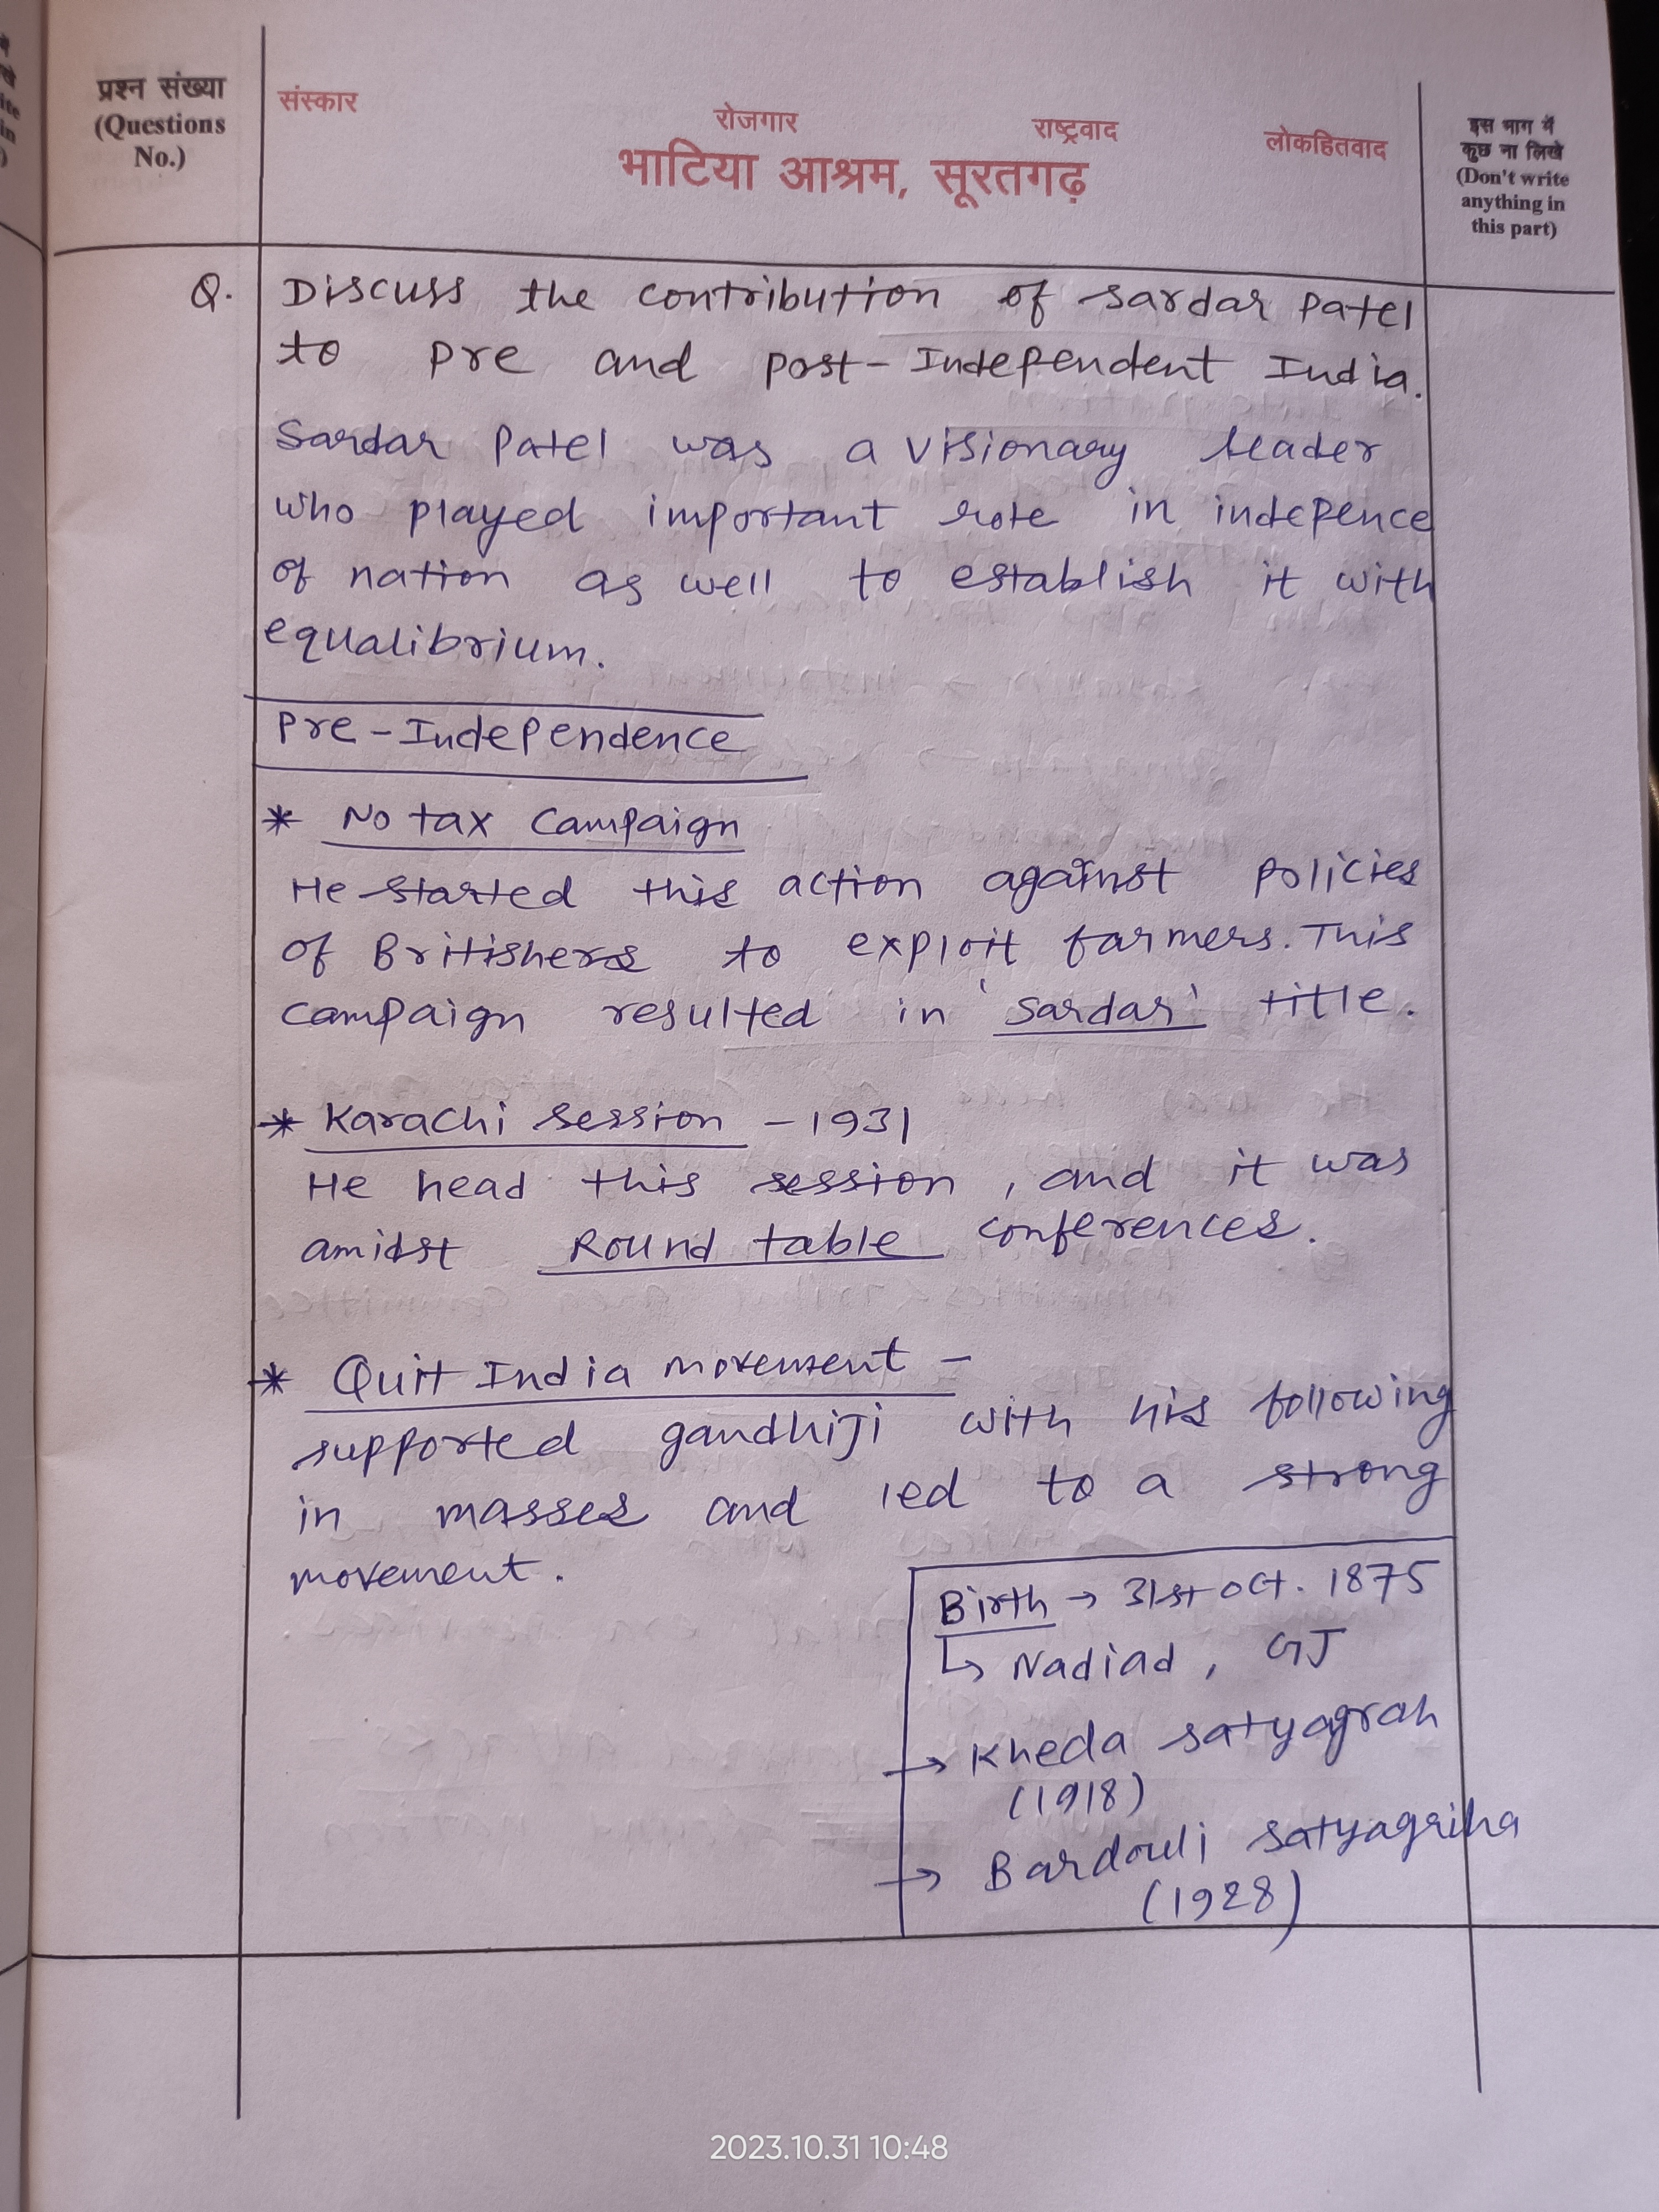 प्रश्न संख्या
(Questions
No.)
संस्कार
रोजगार
राष्ट्रवाद
लोकहितवाद
भाटिया आश्रम, सूरतगढ़
इस भाग में
कुछ ना लिखे
(Don't write
anything in
this part)
Q. Discuss the contribution of Sardar Patel
to Pre and Post-Independent India.
Sardar Patel was a visionary leader
who played important role in indepence
of nation as well to establish it with
equalibrium.
Pre-Independence
* No tax Campaign
He started this action against policies
of Britishers to exploit farmers. This
campaign resulted in 'Sardar' title.
* Karachi Session - 1931
He head this session, and it was
amidst Round table conferences.
* Quit India movement -
supported gandhiji with his following
in masses and led to a strong
movement.
Birth → 31st Oct. 1875
↳ Nadiad, GJ
→ Kheda satyagrah
(1918)
→ Bardouli satyagriha
(1928)
2023.10.31 10:48